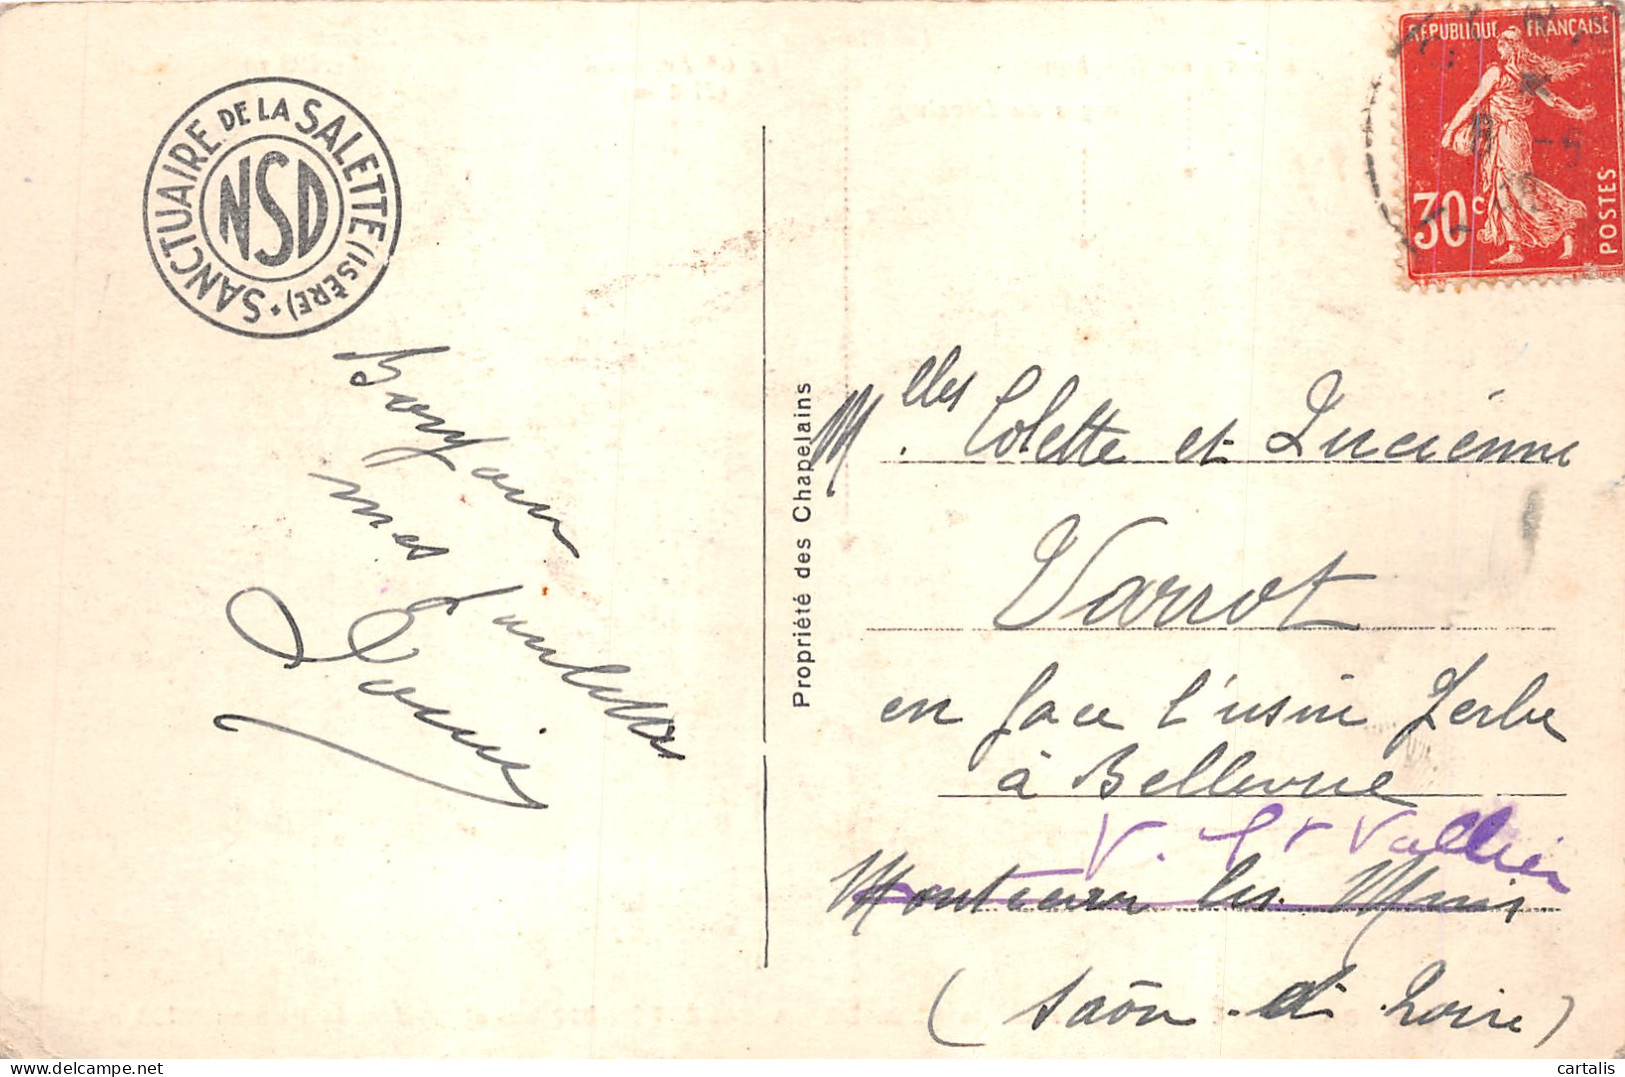 SANCTUAIRE DE LA SALETTE (ISÈRE)
NSD
Bonjour
mes
Louise
Propriété des Chapelains
REPUBLIQUE FRANÇAISE
30c
POSTES
Melles Colette et Lucienne
Varrot
en face l'usine Zerbe
à Bellevue
V. St Vallier
Montceau les Mines
(Saône et Loire)
cartalis